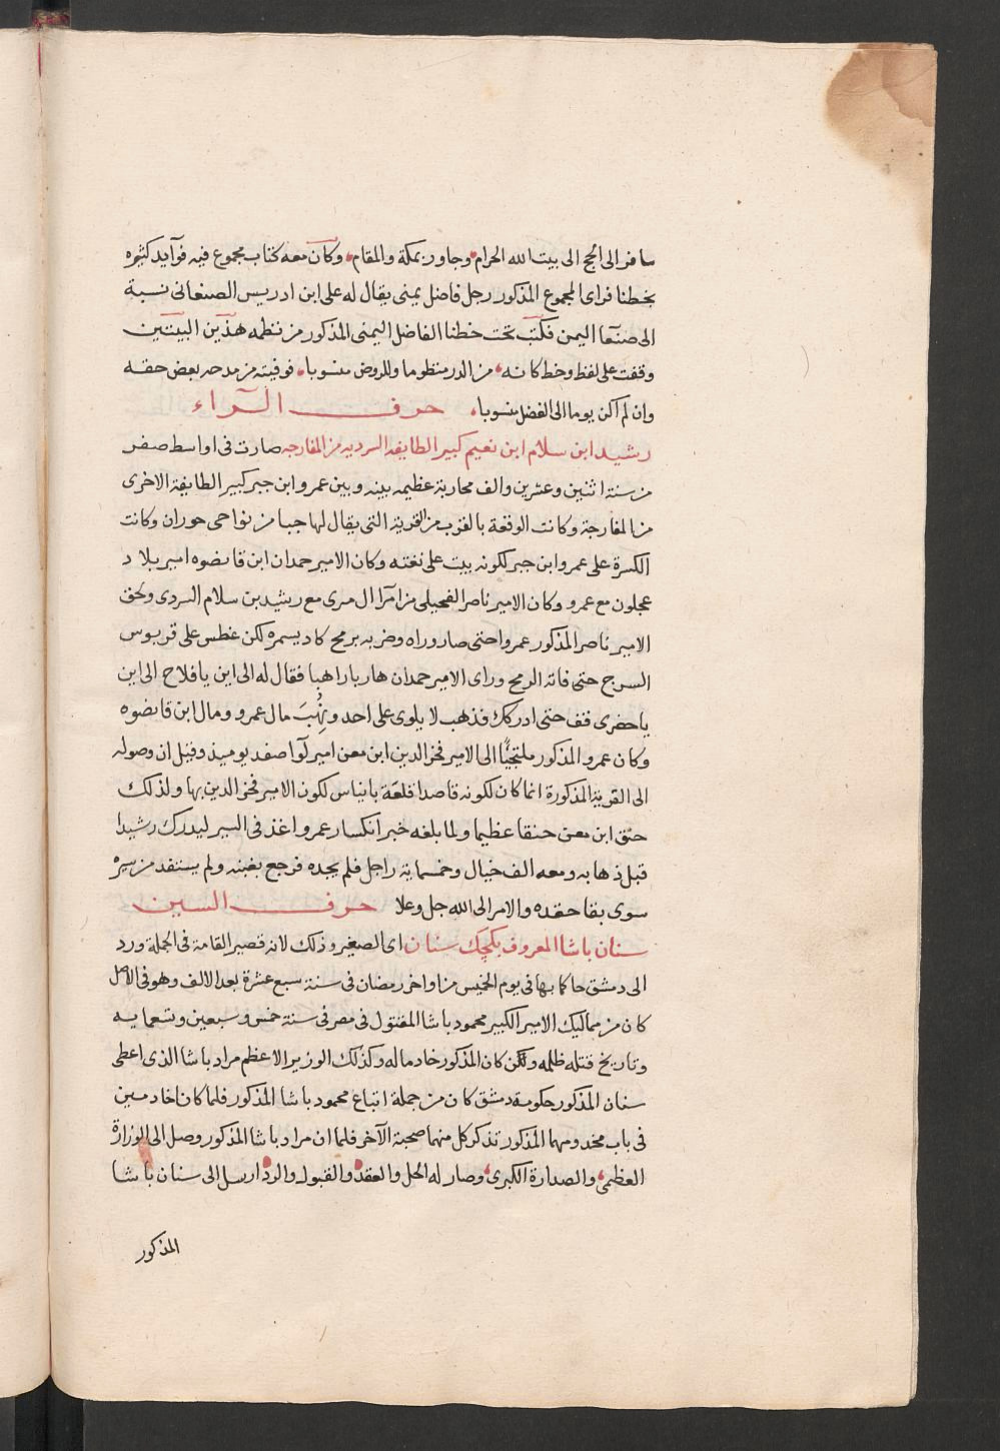 سافر الى الحج الى بيت الله الحرام وجاور بمكة والمقام وكان معه كتاب مجموع فيه فوآيد كثيره
بخطنا فراى المجموع المذكور رجل فاضل يمنى يقال له على ابن ادريس الصنعانى نسبة
الى صنعآ اليمن فكتب تحت خطنا الفاضل اليمنى المذكور من نظمه هذين البيتين
وقفت على لفظ وخط كانه من الدر منظوما وللروض منسوبا فوفيته من مدحه بعض حقه
وان لم اكن يوما الى الفضل منسوبا حرف الرآء
رشيد ابن سلام ابن نعيم كبير الطايفه السرديه من المفارجه صارت فى اواسط صفر
من سنة اثنين وعشرين والف محاربة عظيمه بينه وبين عمرو ابن جبر كبير الطايفة الاخرى
من المفارجة وكانت الوقعة بالقرب من القرية التى يقال لها جبا من نواحى حوران وكانت
الكسرة على عمرو ابن جبر لكونه بيت على نفته وكان الامير حمدان ابن قانصوه امير بلاد
عجلون مع عمرو وكان الامير ناصر الفحيلى من امرآ ال مرى مع رشيد بن سلام السردى ولحق
الامير ناصر المذكور عمروا حتى صار وراه وضربه برمح كاد يسمره لكن غطس على قربوس
السرج حتى فاته الرمح وراى الامير حمدان هاربا راهبا فقال له الى اين يا فلاح الى اين
يا حضرى قف حتى ادركك فذهب لا يلوى على احد ونُهِبَ مال عمرو ومال ابن قانصوه
وكان عمرو المذكور ملتجئًا الى الامير فخر الدين ابن معن امير لوآ صفد يوميذ وقبل ان وصوله
الى القرية المذكورة انما كان لكونه قاصدا قلعة بانياس لكون الامير فخر الدين بها ولذلك
حنق ابن معن حنقا عظيما ولما بلغه خبر انكسار عمرو اغذ فى السير ليدرك رشيدا
قبل ذهابه ومعه الف خيال وخمسماية راجل فلم يجده فرجع بغبنه ولم يستفد من سيره
سوى بقا حقده والامر الى الله جل وعلا حرف السين
سنان باشا المعروف بكجك سنان اى الصغير وذلك لانه قصير القامة فى الجملة ورد
الى دمشق حاكما بها فى يوم الخميس من اواخر رمضان فى سنة سبع عشرة بعد الالف وهو فى الاصل
كان من مماليك الامير الكبير محمود باشا المقتول فى مصر فى سنة خمس وسبعين وتسعمايه
وتاريخ قتله ظلمه ولكن كان المذكور خادما له وكذلك الوزير الاعظم مراد باشا الذى اعطى
سنان المذكور حكومة دمشق كان من جملة اتباع محمود باشا المذكور فلما كانا خادمين
فى باب مخدومهما المذكور تذكر كل منهما صحبة الآخر فلما ان مراد باشا المذكور وصل الى الوزارة
العظمى والصدارة الكبرى وصار له الحل والعقد والقبول والرد ارسل الى سنان باشا
المذكور